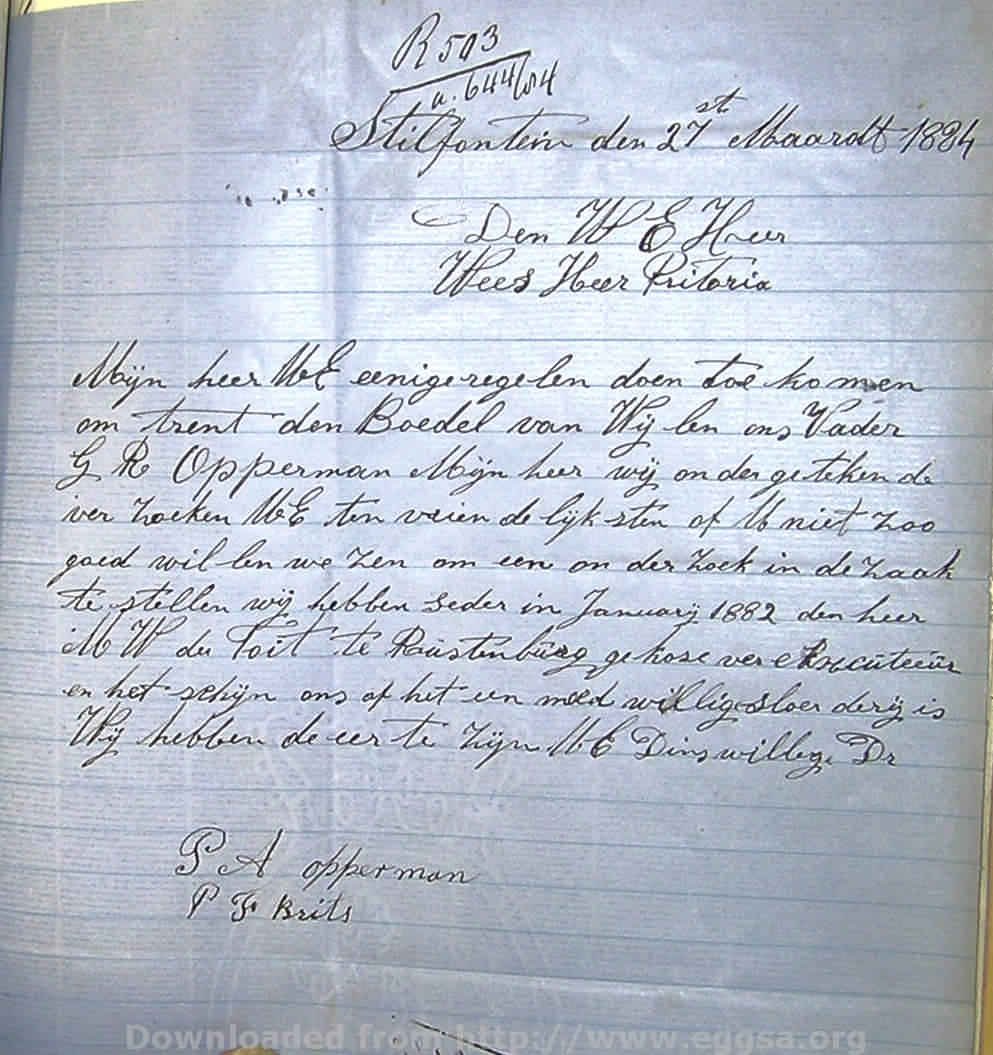 R 503
a. 644/84
Stilfontein den 27st Maardt 1884
Den W E Heer
Wees Heer Pritoria
Mijn heer UE eenige regelen doen toe komen
om trent den Boedel van Wij len ons Vader
G R Opperman Mijn heer wij on der geteken de
ver zoeken UE ten vrien de lijk sten of U niet zoo
goed wil len we zen om een on der zoek in de zaak
te stellen wij hebben seder in Januarij 1882 den heer
M W du Toit te Rustenburg gekose ver eksecuteur
en het schijn ons of het een moed willige sloer derij is
Wij hebben de eer te zijn UE Dinswillege Dr
P A opperman
P F Brits
Downloaded from http://www.eggsa.org